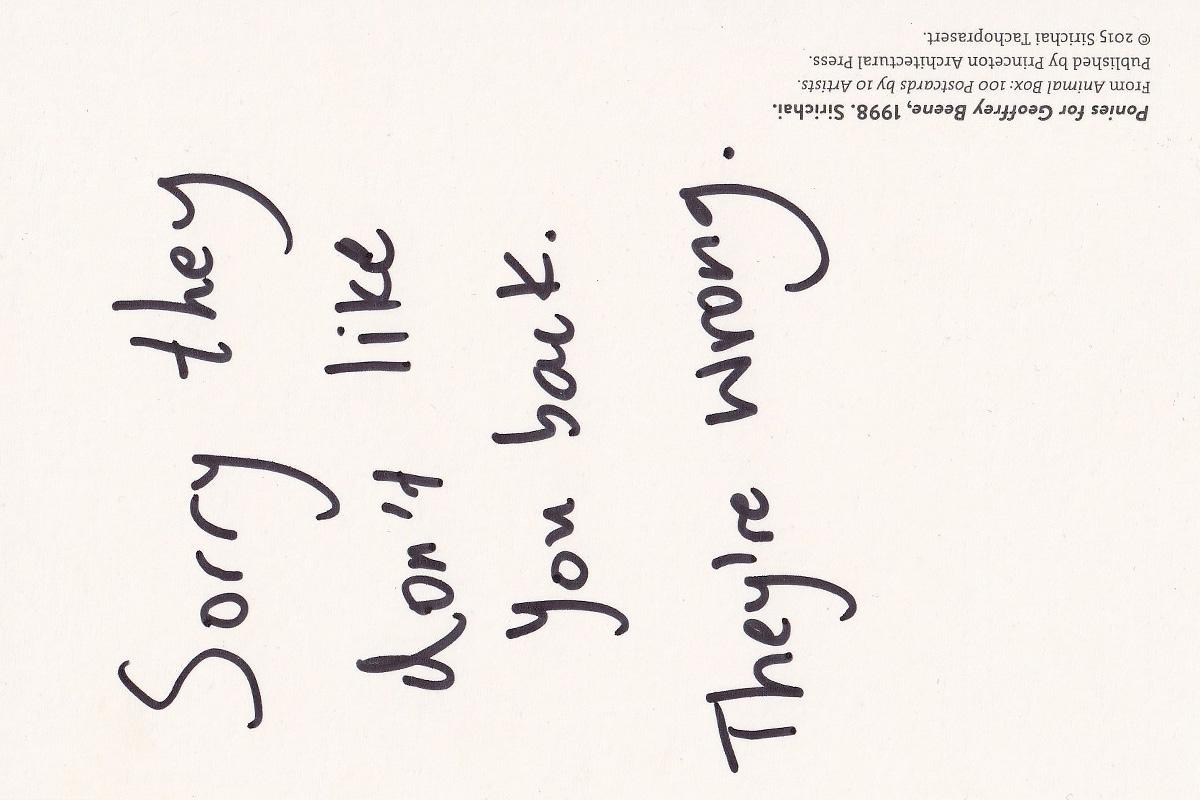 Sorry they
don't like
you back.
They're wrong.
Ponies for Geoffrey Beene, 1998. Sirichai.
From Animal Box: 100 Postcards by 10 Artists.
Published by Princeton Architectural Press.
© 2015 Sirichai Tachoprasert.